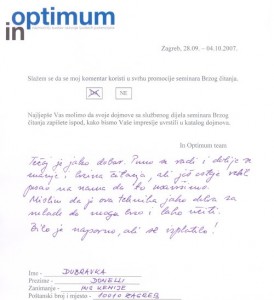 optimum
in
Zagreb, 28.09. – 04.10.2007.
Slažem se da se moj komentar koristi u svrhu promocije seminara Brzog čitanja.
DA NE
Najljepše Vas molimo da svoje dojmove sa službenog dijela seminara Brzog
čitanja zapišete ispod, kako bismo Vaše impresije uvrstili u katalog dojmova.
In Optimum team
Tečaj je jako dobar. Puno se radi i dolazi do
brzina čitanja, ali još ostaje velik
posao na nama da to usavršimo.
Mislim da je ova tehnika jako dobra za
mlade da mogu brzo i lako učiti.
Bilo je naporno ali se isplatilo!
Ime - DUBRAVKA
Prezime - DONELLI
Zanimanje - ING KEMIJE
Poštanski broj i mjesto - 10010 ZAGREB